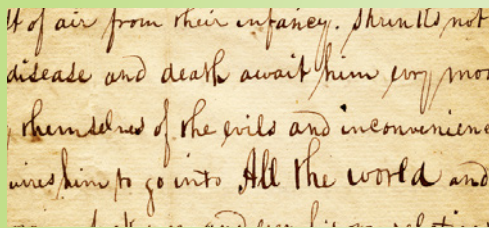 of air from their infancy. Shrinks not
disease and death await him evry mo
themselves of the evils and inconvenienc
uires him to go into All the world and
and